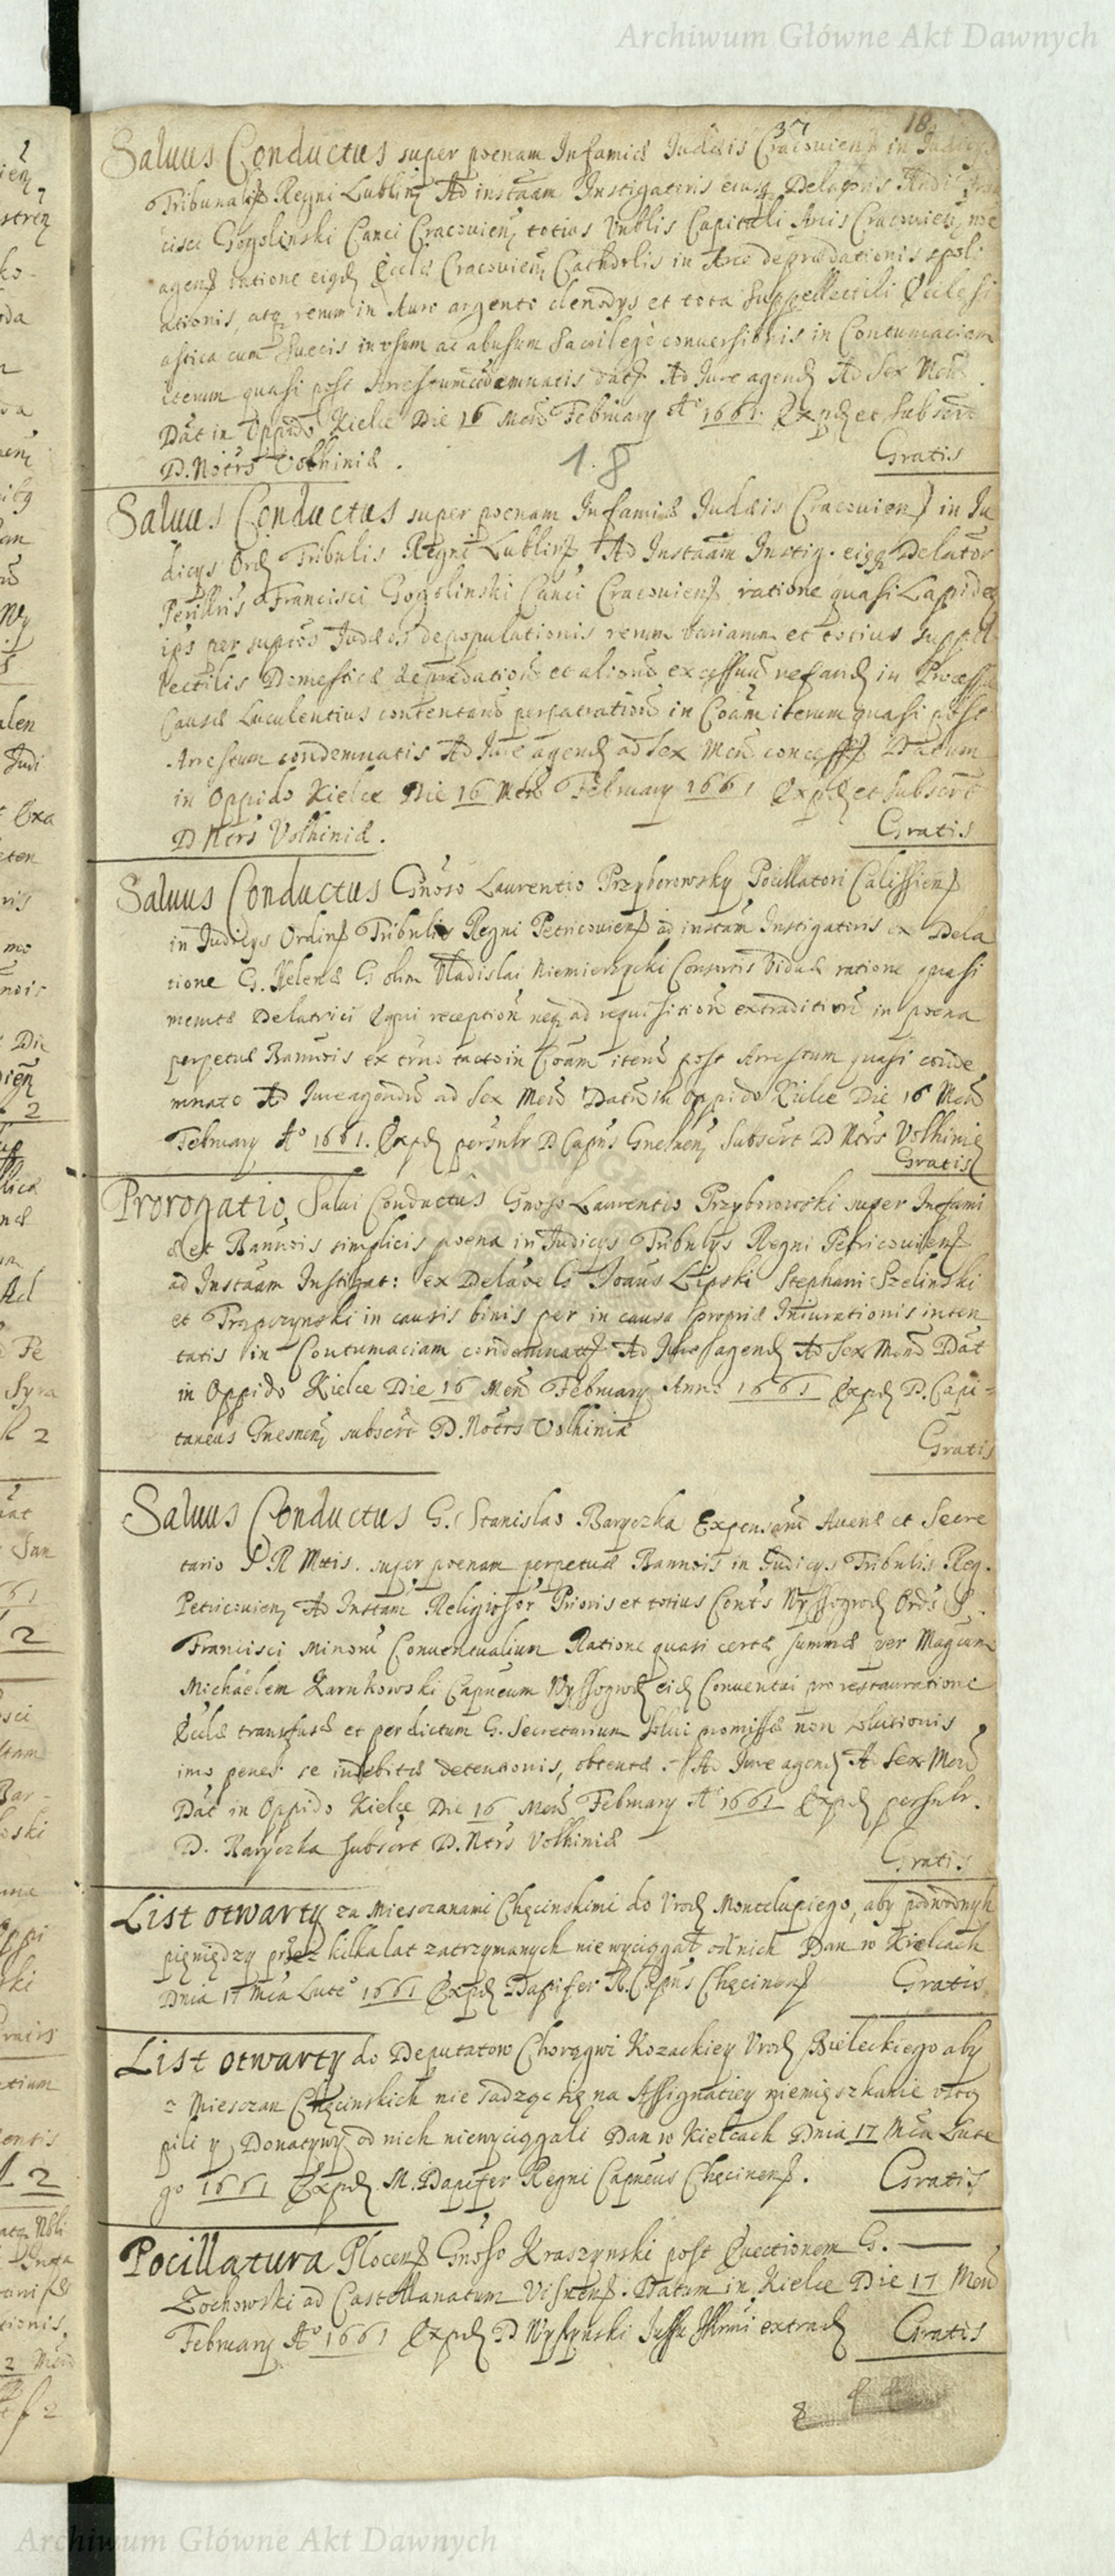 Archiwum Główne Akt Dawnych
37 18
Saluus Conductus super poenam Infamiae Judaeis Cracouien in Judicys
Tribunalis Regni Lublin Ad instãam Instigatoris eiusq Delatoris
cisci Gogolinski Canci Cracouien totius Vnblis Capituli Arcis Cracouien
agen ratione eiqd Eccliae Cracouien Cathdrlis in Arce depraedationis spoli
ationis, atq rerum in Auro argento clenodys et tota Suppellectili Ecclesi
astica cum Suecis in vsum ac abusum Sacrilege conuersionis in Contumaciam
iterum quasi post Arrestum condemnatis dat Ad Jure agend Ad Sex Men
Dat in Oppido Kielce Die 16 Mens February Ao 1661. Expd et Subscrt
D. Notrs Volhiniae. 1.8 Gratis
Saluus Conductus super poenam Infamiae Judaeis Cracouien in Ju
dicys Ord Tribulis Regni Lublin, Ad Instãam Instig. eiqq Delator
Perillris Francisci Gogolinski Canci Cracouien ratione quasi Lapidea
per suptos Judaeos depopulationis rerum variarum et totius suppel
lectilis Domesticae depraedation et aliorũ excessuũ nefand in Processu
Causae Luculentius contentorũ perpatration in Coãm iterum quasi post
Arrestum condemnatis Ad Jure agend ad Sex Men concess Datum
in Oppido Kielce Die 16 Mens February 1661 Expd et Subscrt
D Ntrs Volhiniae. Gratis
Saluus Conductus Gnoso Laurentio Przyborowsky Pocillatori Calissien
in Judicys Ordin Tribulis Regni Petricouien ad instãm Instigatoris ex Dela
tione G. Helenae G olim Vladislai Niemierzycki Consortis Viduae ratione quasi
Delatrici Equi reception neq ad requisition extradition in poena
perpetuae Bannois ex in Coãm iterũ post Arrestum quasi conde
mnato Ad Jure agendũ ad Sex Men Datũ in Oppido Kielce Die 16 Men
February Ao 1661. Expd persnlr D Capus Gnesnen Subscrt D Ntrs Volhiniae
Gratis
Prorogatio Salui Conductus Gnoso Laurentio Przyborowski super Infami
ae et Bannois simplicis poena in Judicys Tribulys Regni Petricouien
ad Instãam Instigat: ex Delaoe G Joanis Lipski Stephani Szelinski
et Trzpczynski in causis binis per in causa propriae Iniurationis inten
tatis in Contumaciam condemnat Ad Jure agend Ad Sex Mens Dat
in Oppido Kielce Die 16 Men February Anno 1661 Expd D. Capi-
taneus Gnesnen subscrt D. Notrs Volhiniae
Gratis
Saluus Conductus G. Stanislao Baryczka Expensarũ Auenae et Secre
tario S R Mtis. super poenam perpetuae Bannois in Judicys Tribulis Reg.
Petricouien Ad Instãm Religiosor Prioris et totius Conts Wyssogrod Ordis S.
Francisci Minorũ Conuentualium Ratione quasi certae summae per Magcum
Michaelem Karnkowski Capneum Wyssogrod eid Conuentui pro restauratione
Eccliae transfusae et per dictum G. Secretarium solui promissae non solutionis
imo penes se indebitae detentionis, obtentae. Ad Jure agend Ad Sex Men
Dat in Oppido Kielce Die 16 Men February Ao 1661 Expd persnlr.
D. Baryczka subscrt D. Ntrs Volhiniae
Gratis
List otwarty za Miesczanami Chęcinskimi do Vrod Montelupiego, aby podwodnych
pięniędzy przez kilka lat zatrzymanych nie wyciągał od nich Dan w Kielcach
Dnia 17 Mca Lute 1661 Expd Dapifer R. Capus Chęcinen Gratis
List otwarty do Deputatow Chorągwi Kozackiey Vrod Bieleckiego aby
z Miesczan Chęcinskich nie sadząc się na Assignatiey niemięszkanie vstą
pili y Donatywy od nich niewyciągali Dan w Kielcach Dnia 17 Mca Lute
go 1661 Expd M. Dapifer Regni Capneus Chęcinen. Gratis
Pocillatura Plocen Gnoso Kraszynski post Euectionem G.
Zochowski ad Castellanatum Visnen. Datum in Kielce Die 17 Men
February Ao 1661 Expd D Wyszynski Jussu Illrmi extrad Gratis
8
Archiwum Główne Akt Dawnych